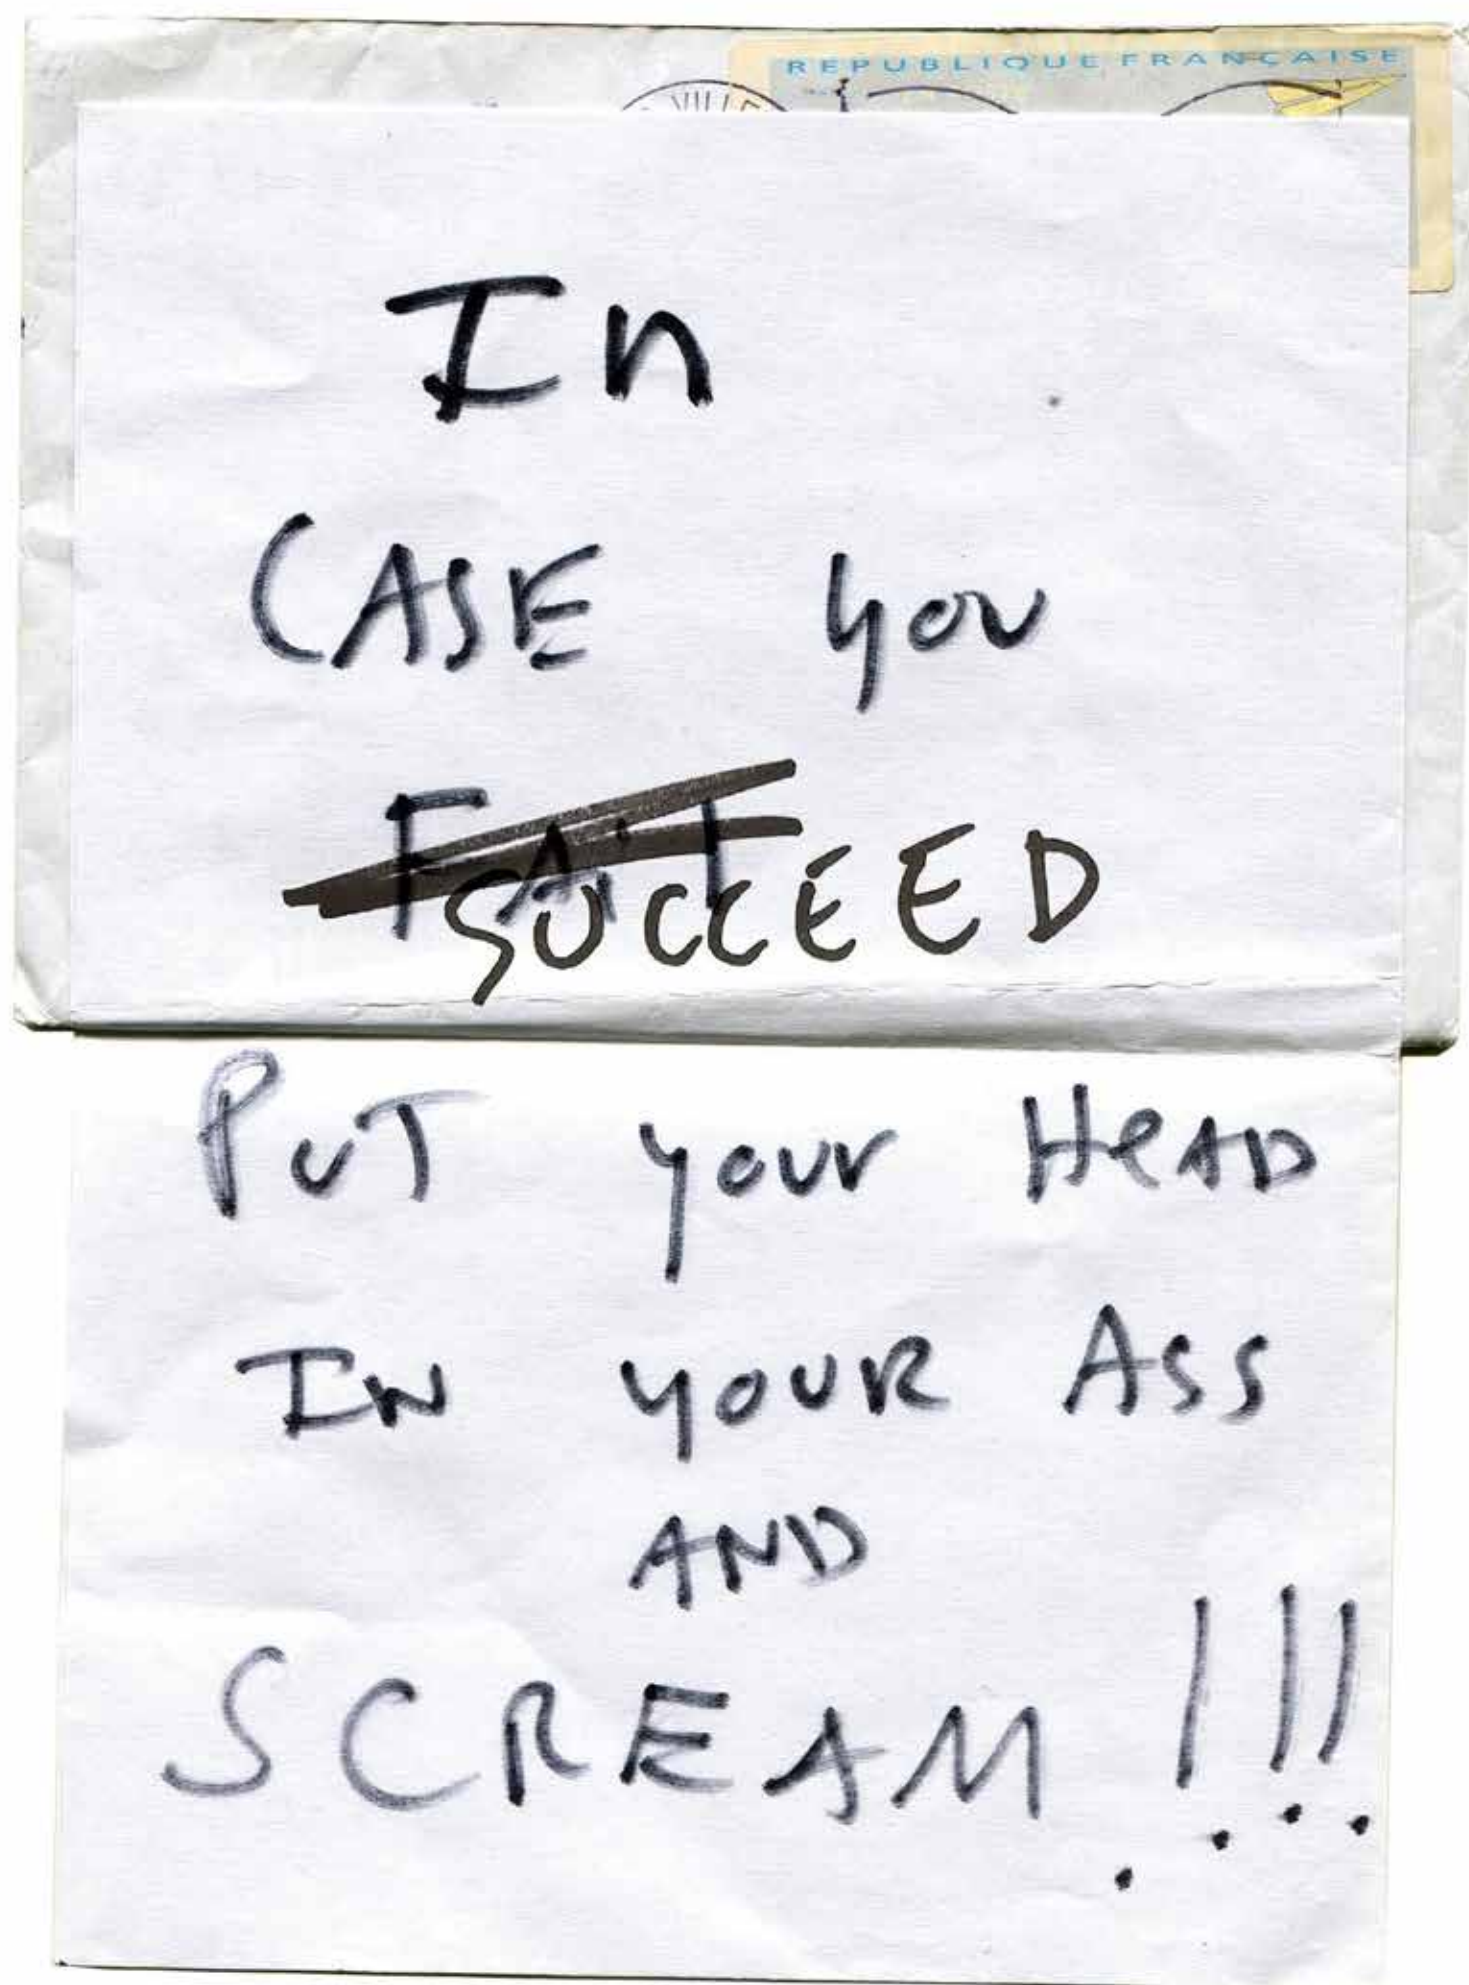 REPUBLIQUE FRANÇAISE
VILLE
In
CASE you
FAIL
SUCCEED
PUT your HeAD
IN YOUR ASS
AND
SCREAM !!!